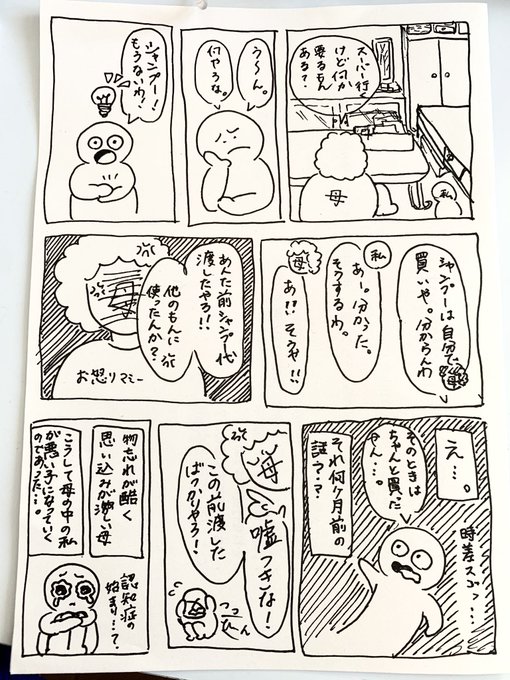 スーパー行く
けど何か
要るもん
ある？
母
私
う〜ん。
何やろな。
シャンプー！
もうないわ！
シャンプーは自分で
買いや。分からんわ
母
私
あー。分かった。
そうするわ。
母
あ！！そうや！！
あんた前シャンプー代
渡したやろ！！
他のもんに
使ったんか？
母
お怒りマミー
え…。
時差スゴッ…
そのときは
ちゃんと買った
やん…。
それ何ヶ月前の
話う…？
母
嘘つきな！
この前渡した
ばっかりやろ！
物忘れが酷く
思い込みが激しい母
こうして母の中の私
が悪い子になっていく
のであった…。
認知症の
始まり…？